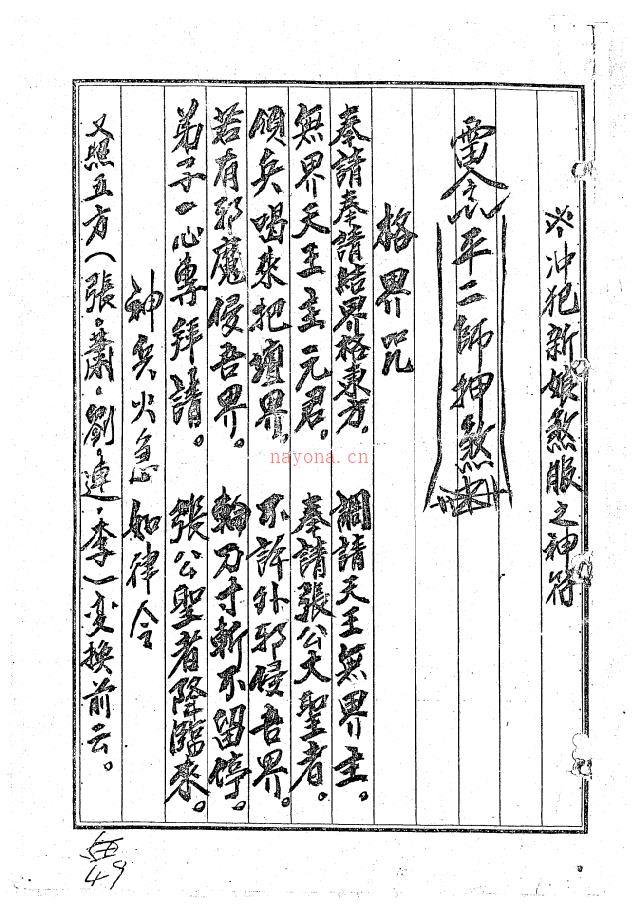 ※冲犯新娘煞服之神符
雷令平二師押煞
格界咒
奉請奉請結界格東方。調請天王無界主。
無界天王主元君。奉請張公大聖者。
領兵喝來把壇界。不許外邪侵吾界。
若有邪魔侵吾界。輪刀寸斬不留停。
弟子一心專拜請。張公聖者降臨來。
神兵火急如律令
又照五方(張.蕭.劉.連.李)变換前云。
49
nayona.cn